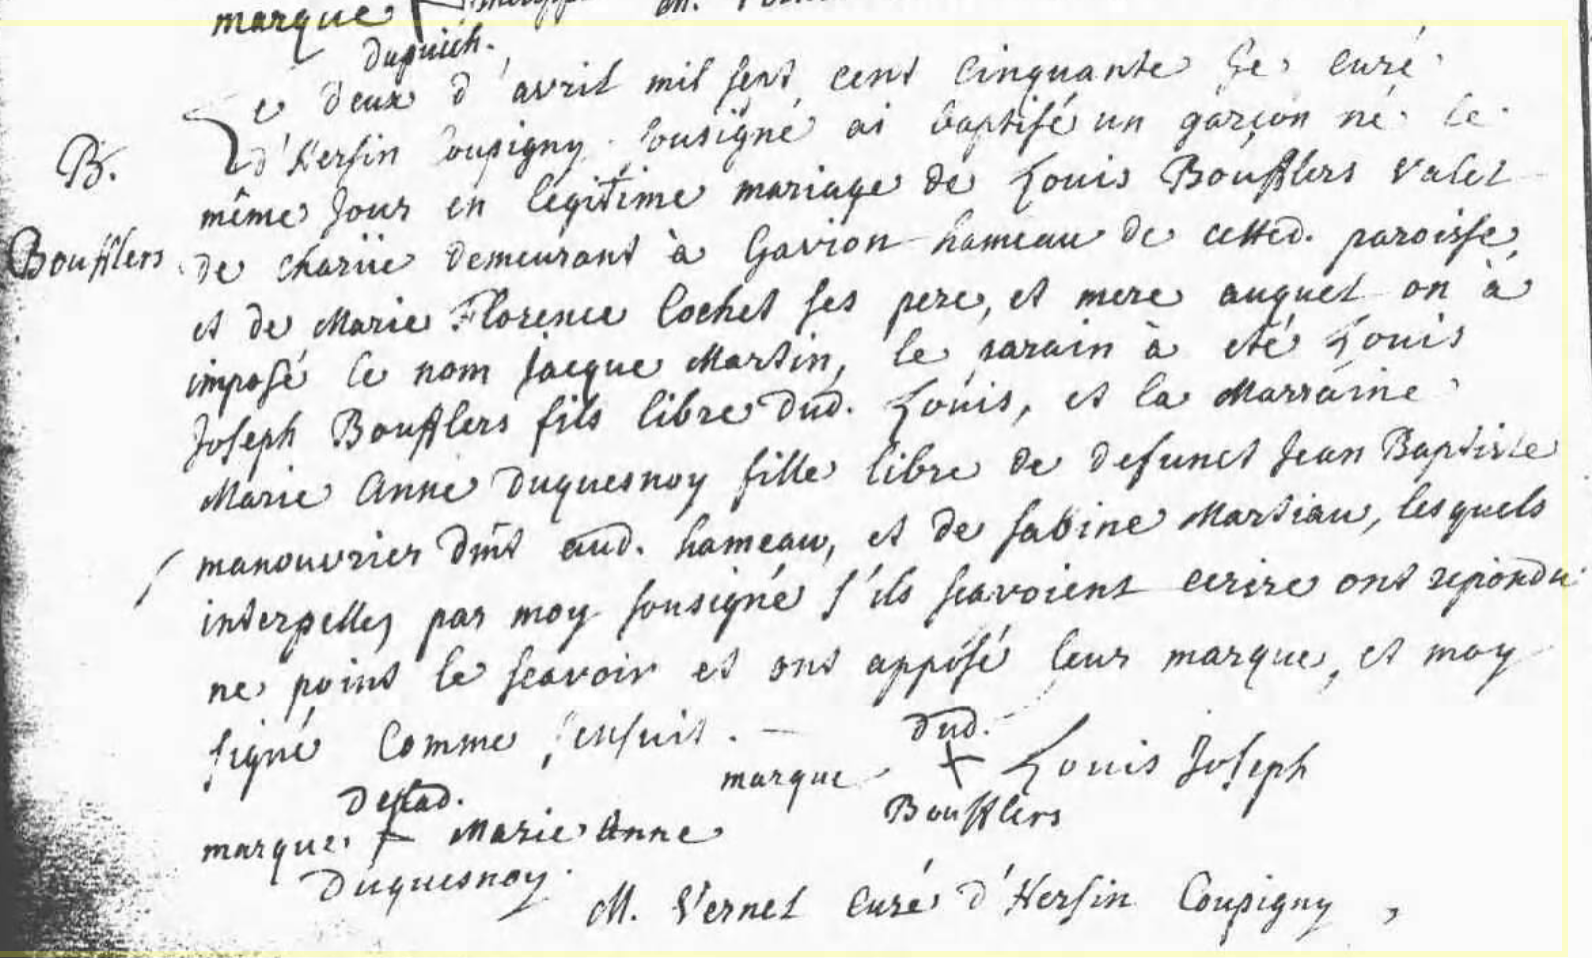 marque
Dupuich.
Le deux d'avril mil sept cent cinquante Je curé
d'Hersin Coupigny sousigné ai baptisé un garçon né le
B.
même jour en légitime mariage de Louis Boufflers valet
Boufflers
de charüe demeurant à Gavion hameau de cetted. paroisse,
et de Marie Florence Cochet ses pere, et mere auquel on à
imposé le nom jacque Martin, le parain à eté Louis
Joseph Boufflers fils libre dud. Louis, et la Marraine
Marie Anne Duquesnoy fille libre de defunct Jean Baptiste
manouvrier dmt aud. hameau, et de Sabine Martiau, lesquels
interpellez par moy sousigné s'ils scavoient ecrire ont repondu
ne point le scavoir et ont apposé leur marque, et moy
signé comme s'ensuit. —
dud.
marque + Louis Joseph
Boufflers
delad.
marque + Marie Anne
Duquesnoy.
M. Vernel curé d'Hersin Coupigny,